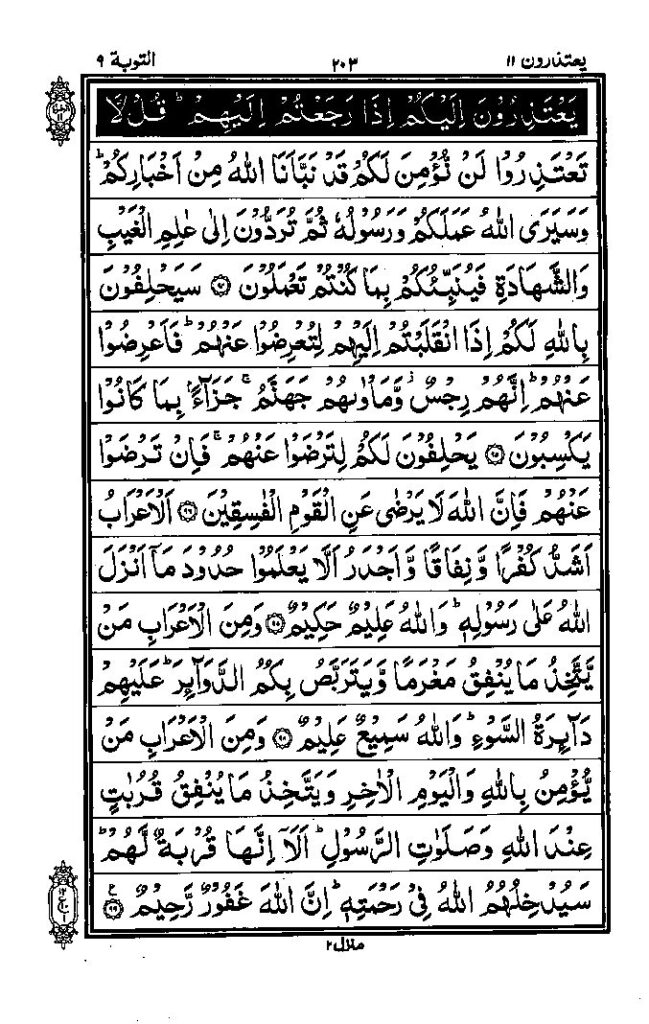 يعتذرون ١١ ٢٠٣ التوبة ٩
يَعْتَذِرُوْنَ اِلَيْكُمْ اِذَا رَجَعْتُمْ اِلَيْهِمْ ؕ قُلْ لَّا
تَعْتَذِرُوْا لَنْ نُّؤْمِنَ لَكُمْ قَدْ نَبَّاَنَا اللّٰهُ مِنْ اَخْبَارِكُمْ ؕ
وَسَيَرَى اللّٰهُ عَمَلَكُمْ وَرَسُوْلُهٗ ثُمَّ تُرَدُّوْنَ اِلٰى عٰلِمِ الْغَيْبِ
وَالشَّهَادَةِ فَيُنَبِّئُكُمْ بِمَا كُنْتُمْ تَعْمَلُوْنَ ﴿٩٤﴾ سَيَحْلِفُوْنَ
بِاللّٰهِ لَكُمْ اِذَا انْقَلَبْتُمْ اِلَيْهِمْ لِتُعْرِضُوْا عَنْهُمْ ؕ فَاَعْرِضُوْا
عَنْهُمْ ؕ اِنَّهُمْ رِجْسٌ ؗ وَّمَاْوٰىهُمْ جَهَنَّمُ ۚ جَزَآءًۢ بِمَا كَانُوْا
يَكْسِبُوْنَ ﴿٩٥﴾ يَحْلِفُوْنَ لَكُمْ لِتَرْضَوْا عَنْهُمْ ۚ فَاِنْ تَرْضَوْا
عَنْهُمْ فَاِنَّ اللّٰهَ لَا يَرْضٰى عَنِ الْقَوْمِ الْفٰسِقِيْنَ ﴿٩٦﴾ اَلْاَعْرَابُ
اَشَدُّ كُفْرًا وَّنِفَاقًا وَّاَجْدَرُ اَلَّا يَعْلَمُوْا حُدُوْدَ مَاۤ اَنْزَلَ
اللّٰهُ عَلٰى رَسُوْلِهٖ ؕ وَاللّٰهُ عَلِيْمٌ حَكِيْمٌ ﴿٩٧﴾ وَمِنَ الْاَعْرَابِ مَنْ
يَّتَّخِذُ مَا يُنْفِقُ مَغْرَمًا وَّيَتَرَبَّصُ بِكُمُ الدَّوَآئِرَ ؕ عَلَيْهِمْ
دَآئِرَةُ السَّوْءِ ؕ وَاللّٰهُ سَمِيْعٌ عَلِيْمٌ ﴿٩٨﴾ وَمِنَ الْاَعْرَابِ مَنْ
يُّؤْمِنُ بِاللّٰهِ وَالْيَوْمِ الْاٰخِرِ وَيَتَّخِذُ مَا يُنْفِقُ قُرُبٰتٍ
عِنْدَ اللّٰهِ وَصَلَوٰتِ الرَّسُوْلِ ؕ اَلَاۤ اِنَّهَا قُرْبَةٌ لَّهُمْ ؕ
سَيُدْخِلُهُمُ اللّٰهُ فِيْ رَحْمَتِهٖ ؕ اِنَّ اللّٰهَ غَفُوْرٌ رَّحِيْمٌ ﴿٩٩﴾ ع
منزل ٢